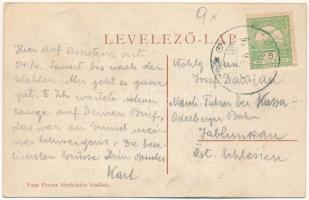 9x
LEVELEZŐ-LAP
Hier auf Assistenz seit
24/4. Dauert bis nach den
Wahlen. Mir geht es ganz
gut. Ich wartete schon
lange auf Deinen Brief,
das war der Grund mei-
nes Schweigens. Die herz-
lichsten Grüsse Dein Bruder
Karl
Wohlg.
Josef
Masch. Führer der Kassa-
Oderberger Bahn
Jablunkau
Öst. Schlesien
5
Papp Ferenc fényképész kiadása.